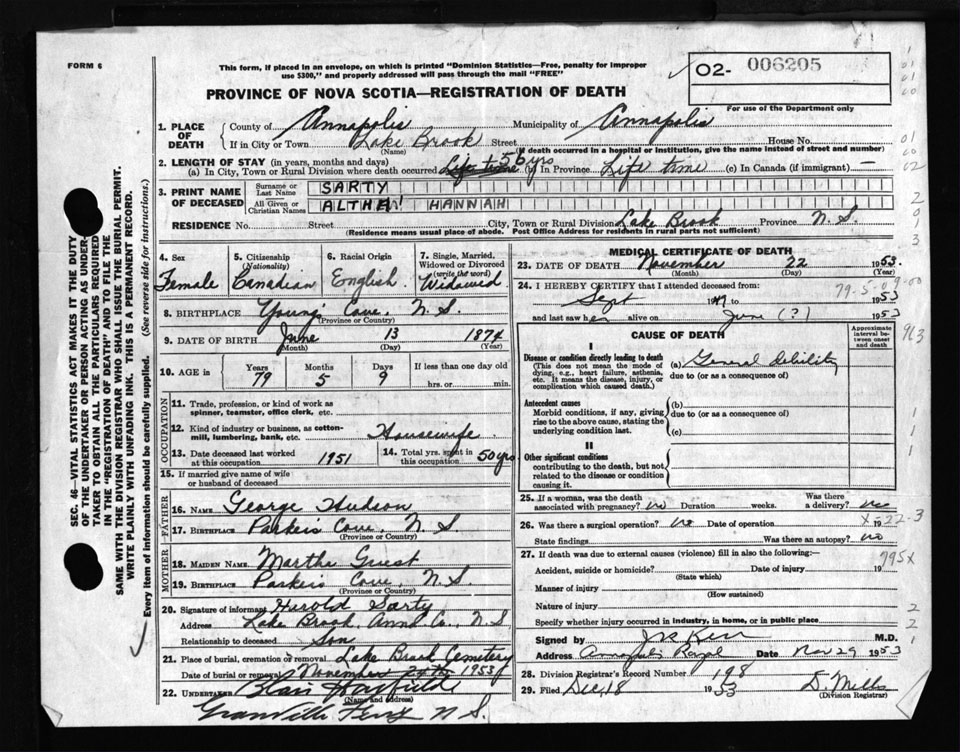 FORM 6
This form, if placed in an envelope, on which is printed "Dominion Statistics—Free, penalty for improper
use $300," and properly addressed will pass through the mail "FREE"
02- 006205
For use of the Department only
PROVINCE OF NOVA SCOTIA—REGISTRATION OF DEATH
1. PLACE OF DEATH
County of Annapolis Municipality of Annapolis
If in City or Town Lake Brook Street House No.
(Name) (If death occurred in a hospital or institution, give the name instead of street and number)
2. LENGTH OF STAY (in years, months and days)
(a) In City, Town or Rural Division where death occurred Life time 56 yrs (b) In Province Life time (c) In Canada (if immigrant) —
3. PRINT NAME OF DECEASED
Surname or Last Name SARTY
All Given or Christian Names ALTHEA HANNAH
RESIDENCE No. Street City, Town or Rural Division Lake Brook Province N.S.
(Residence means usual place of abode. Post Office Address for residents in rural parts not sufficient)
4. Sex
Female
5. Citizenship
(Nationality)
Canadian
6. Racial Origin
English
7. Single, Married, Widowed or Divorced
(write the word)
Widowed
8. BIRTHPLACE Young's Cove, N.S.
(Province or Country)
9. DATE OF BIRTH June 13 1874
(Month) (Day) (Year)
10. AGE in
Years Months Days If less than one day old
79 5 9 hrs. or min.
OCCUPATION
11. Trade, profession, or kind of work as
spinner, teamster, office clerk, etc.
12. Kind of industry or business, as cotton-
mill, lumbering, bank, etc. Housewife
13. Date deceased last worked
at this occupation 1951
14. Total yrs. spent in
this occupation 50 yrs
15. If married give name of wife
or husband of deceased
FATHER
16. NAME George Hudson
17. BIRTHPLACE Parker's Cove, N.S
(Province or Country)
MOTHER
18. MAIDEN NAME Martha Guest
19. BIRTHPLACE Parker's Cove, N.S.
(Province or Country)
20. Signature of informant Harold Sarty
Address Lake Brook, Anna Co., N.S
Relationship to deceased Son
21. Place of burial, cremation or removal Lake Brook Cemetery
Date of burial or removal November 24th 1953
22. UNDERTAKER
(Name and address)
Granville Ferry N S.
MEDICAL CERTIFICATE OF DEATH
23. DATE OF DEATH November 22 1953.
(Month) (Day) (Year)
24. I HEREBY CERTIFY that I attended deceased from:
Sept to 1953
and last saw her alive on June (?) 1953
CAUSE OF DEATH
Approximate interval between onset and death
I
Disease or condition directly leading to death
(This does not mean the mode of
dying, e.g., heart failure, asthenia,
etc. It means the disease, injury, or
complication which caused death.)
(a) General debility
due to (or as a consequence of)
Antecedent causes
Morbid conditions, if any, giving
rise to the above cause, stating the
underlying condition last.
(b)
due to (or as a consequence of)
(c)
II
Other significant conditions
contributing to the death, but not
related to the disease or condition
causing it.
25. If a woman, was the death
associated with pregnancy? no Duration weeks. Was there
a delivery? no
26. Was there a surgical operation? no Date of operation 19
State findings Was there an autopsy? no
27. If death was due to external causes (violence) fill in also the following:—
Accident, suicide or homicide? Date of injury 19
(State which)
Manner of injury
(How sustained)
Nature of injury
Specify whether injury occurred in industry, in home, or in public place
Signed by M.D.
Address Annapolis Royal Date Nov 29 1953
28. Division Registrar's Record Number 198
29. Filed Dec 18 1953 D Mills
(Division Registrar)
795x
SEC. 46—VITAL STATISTICS ACT MAKES IT THE DUTY
OF THE UNDERTAKER OR PERSON ACTING AS UNDER-
TAKER TO OBTAIN ALL THE PARTICULARS REQUIRED
IN THE "REGISTRATION OF DEATH" AND TO FILE THE
SAME WITH THE DIVISION REGISTRAR WHO SHALL ISSUE THE BURIAL PERMIT.
WRITE PLAINLY WITH UNFADING INK. THIS IS A PERMANENT RECORD.
Every item of information should be carefully supplied. (See reverse side for instructions.)